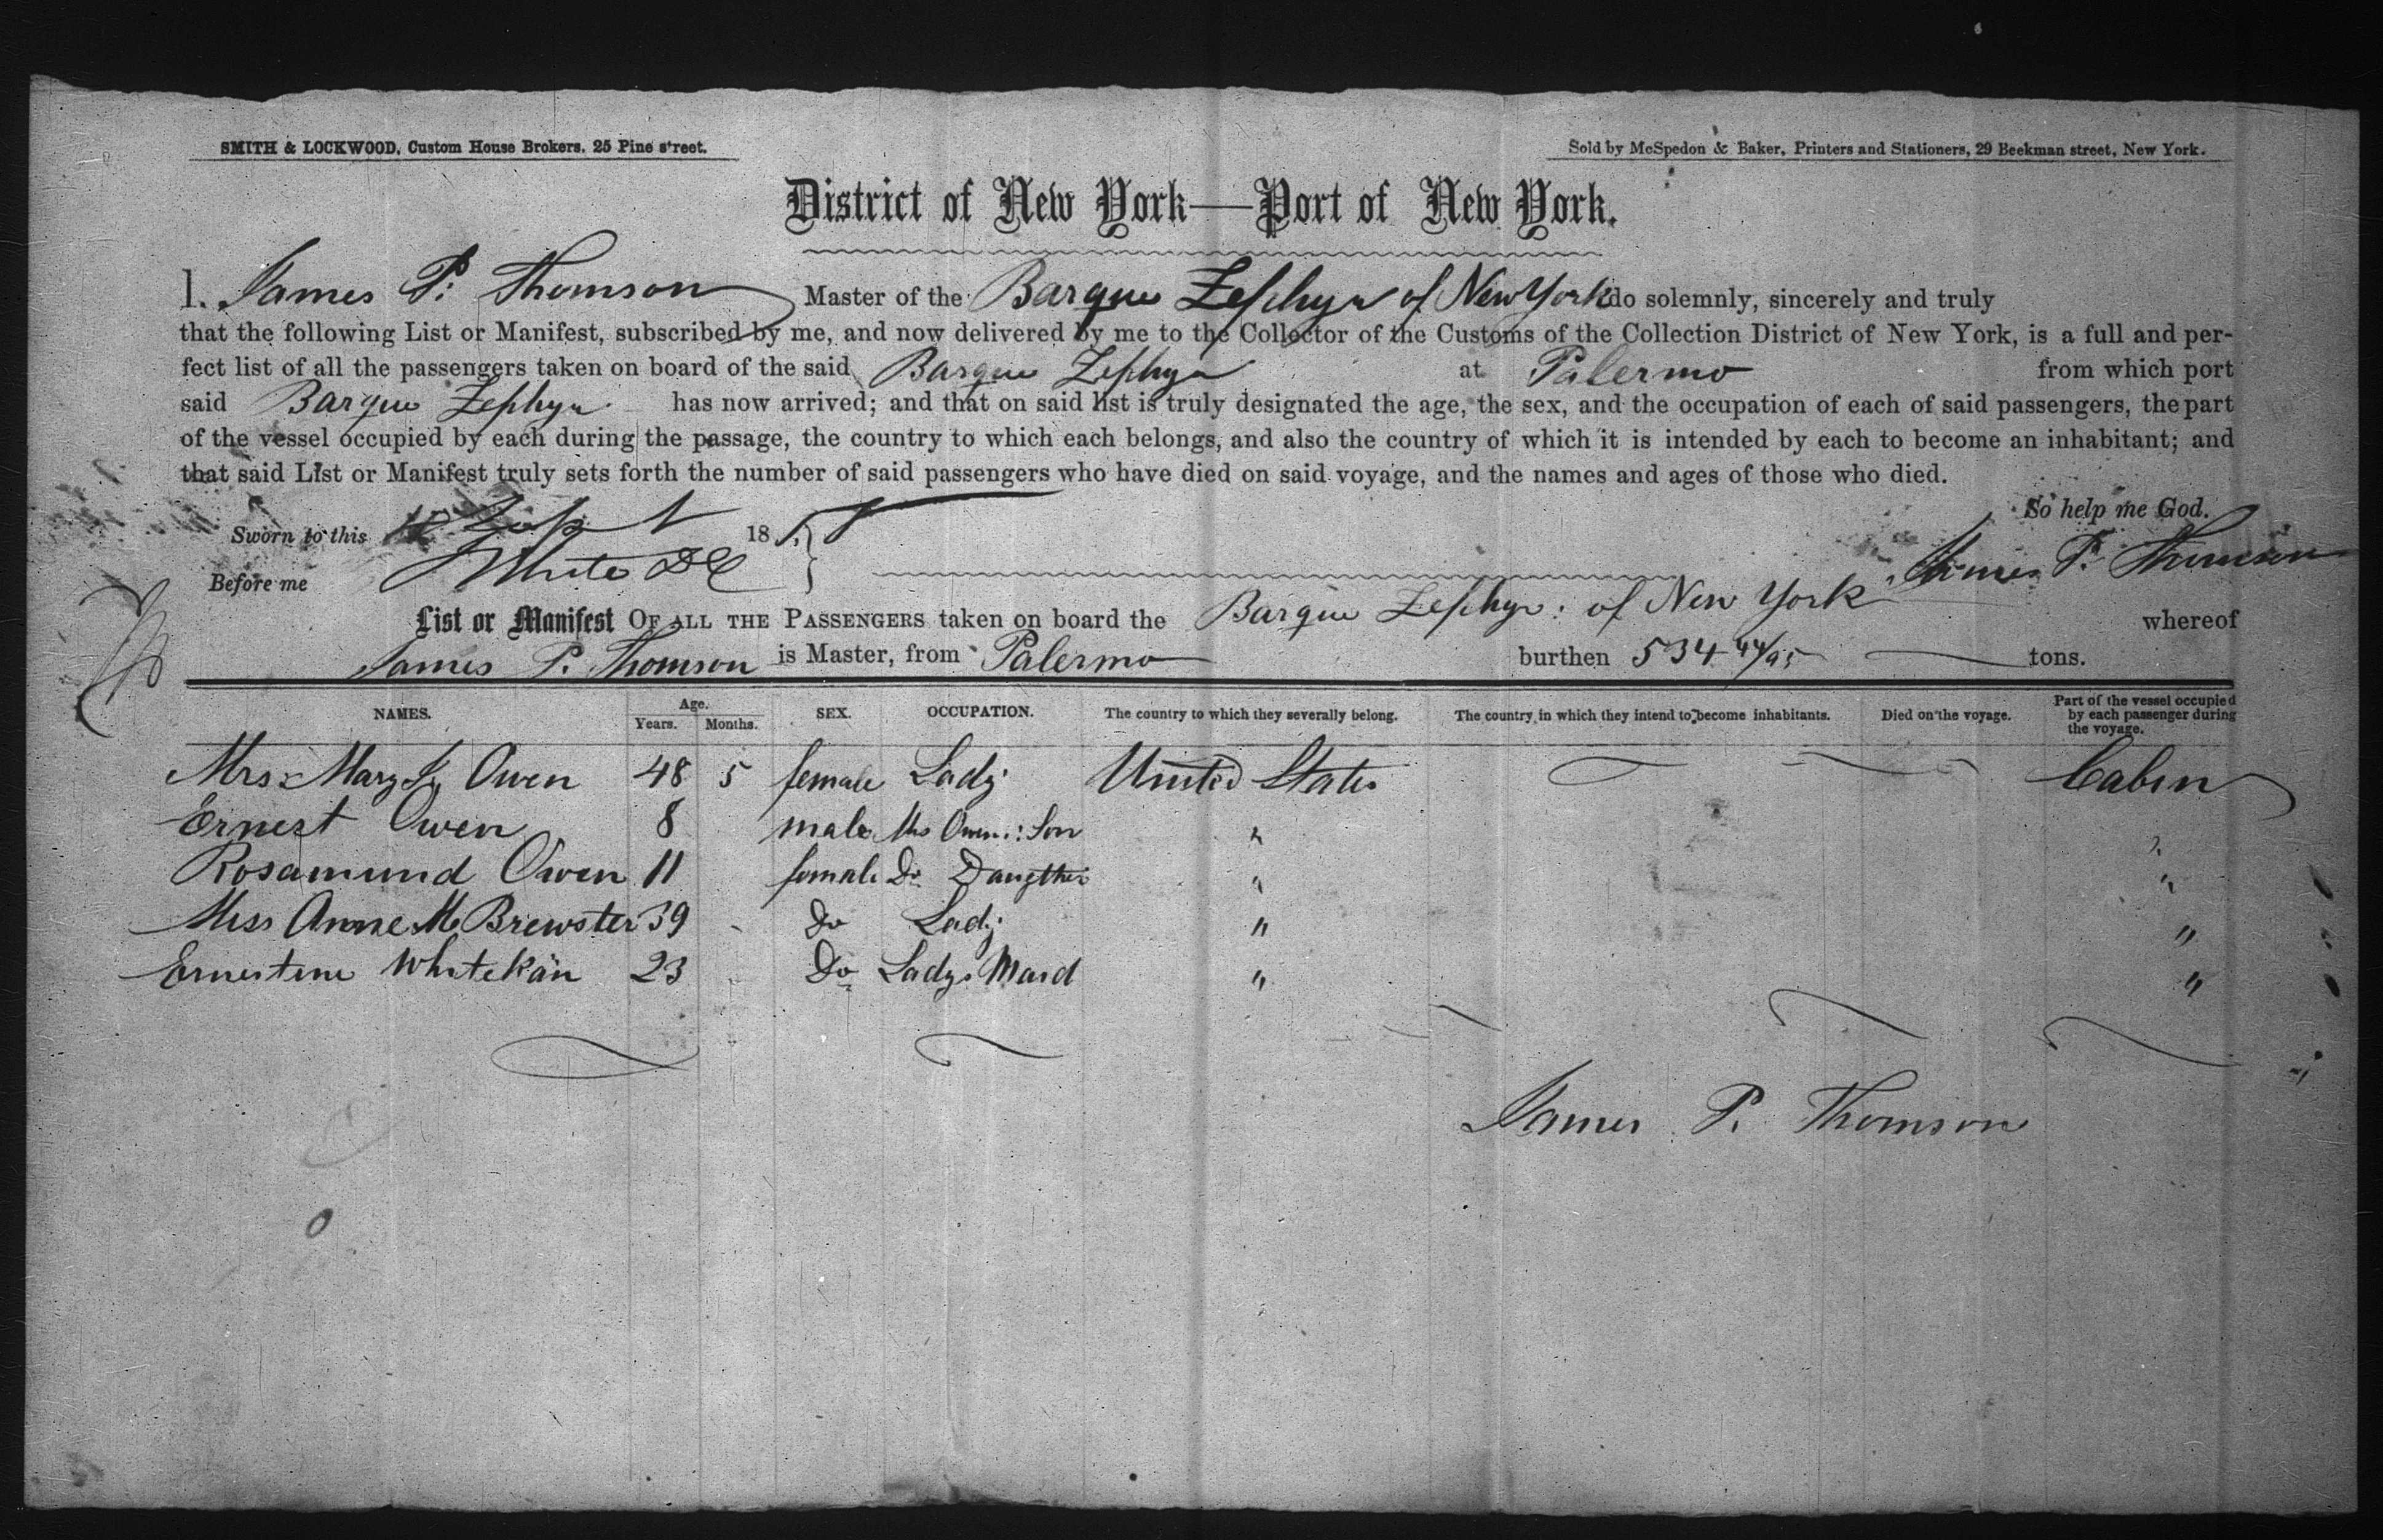 SMITH & LOCKWOOD, Custom House Brokers, 25 Pine street.
Sold by McSpedon & Baker, Printers and Stationers, 29 Beekman street, New York.
District of New York—Port of New York.
I. James P. Thomson Master of the Barque Zephyr of New York do solemnly, sincerely and truly
that the following List or Manifest, subscribed by me, and now delivered by me to the Collector of the Customs of the Collection District of New York, is a full and per-
fect list of all the passengers taken on board of the said Barque Zephyr at Palermo from which port
said Barque Zephyr has now arrived; and that on said list is truly designated the age, the sex, and the occupation of each of said passengers, the part
of the vessel occupied by each during the passage, the country to which each belongs, and also the country of which it is intended by each to become an inhabitant; and
that said List or Manifest truly sets forth the number of said passengers who have died on said voyage, and the names and ages of those who died.
So help me God.
Sworn to this Sept 1858
James P. Thomson
Before me White DC
List or Manifest OF ALL THE PASSENGERS taken on board the Barque Zephyr: of New York whereof
James P. Thomson is Master, from Palermo burthen 534 44/95 tons.
NAMES. Age. Years. Months. SEX. OCCUPATION. The country to which they severally belong. The country in which they intend to become inhabitants. Died on the voyage. Part of the vessel occupied by each passenger during the voyage.
Mrs Mary J. Owen 48 5 female Lady United States Cabin
Ernest Owen 8 male Mrs Owen: Son " "
Rosamund Owen 11 female Do Daugther " "
Miss Anne M. Brewster 39 - Do Lady " "
Ernestine Whitekän 23 - Do Ladys Maid " "
James P. Thomson